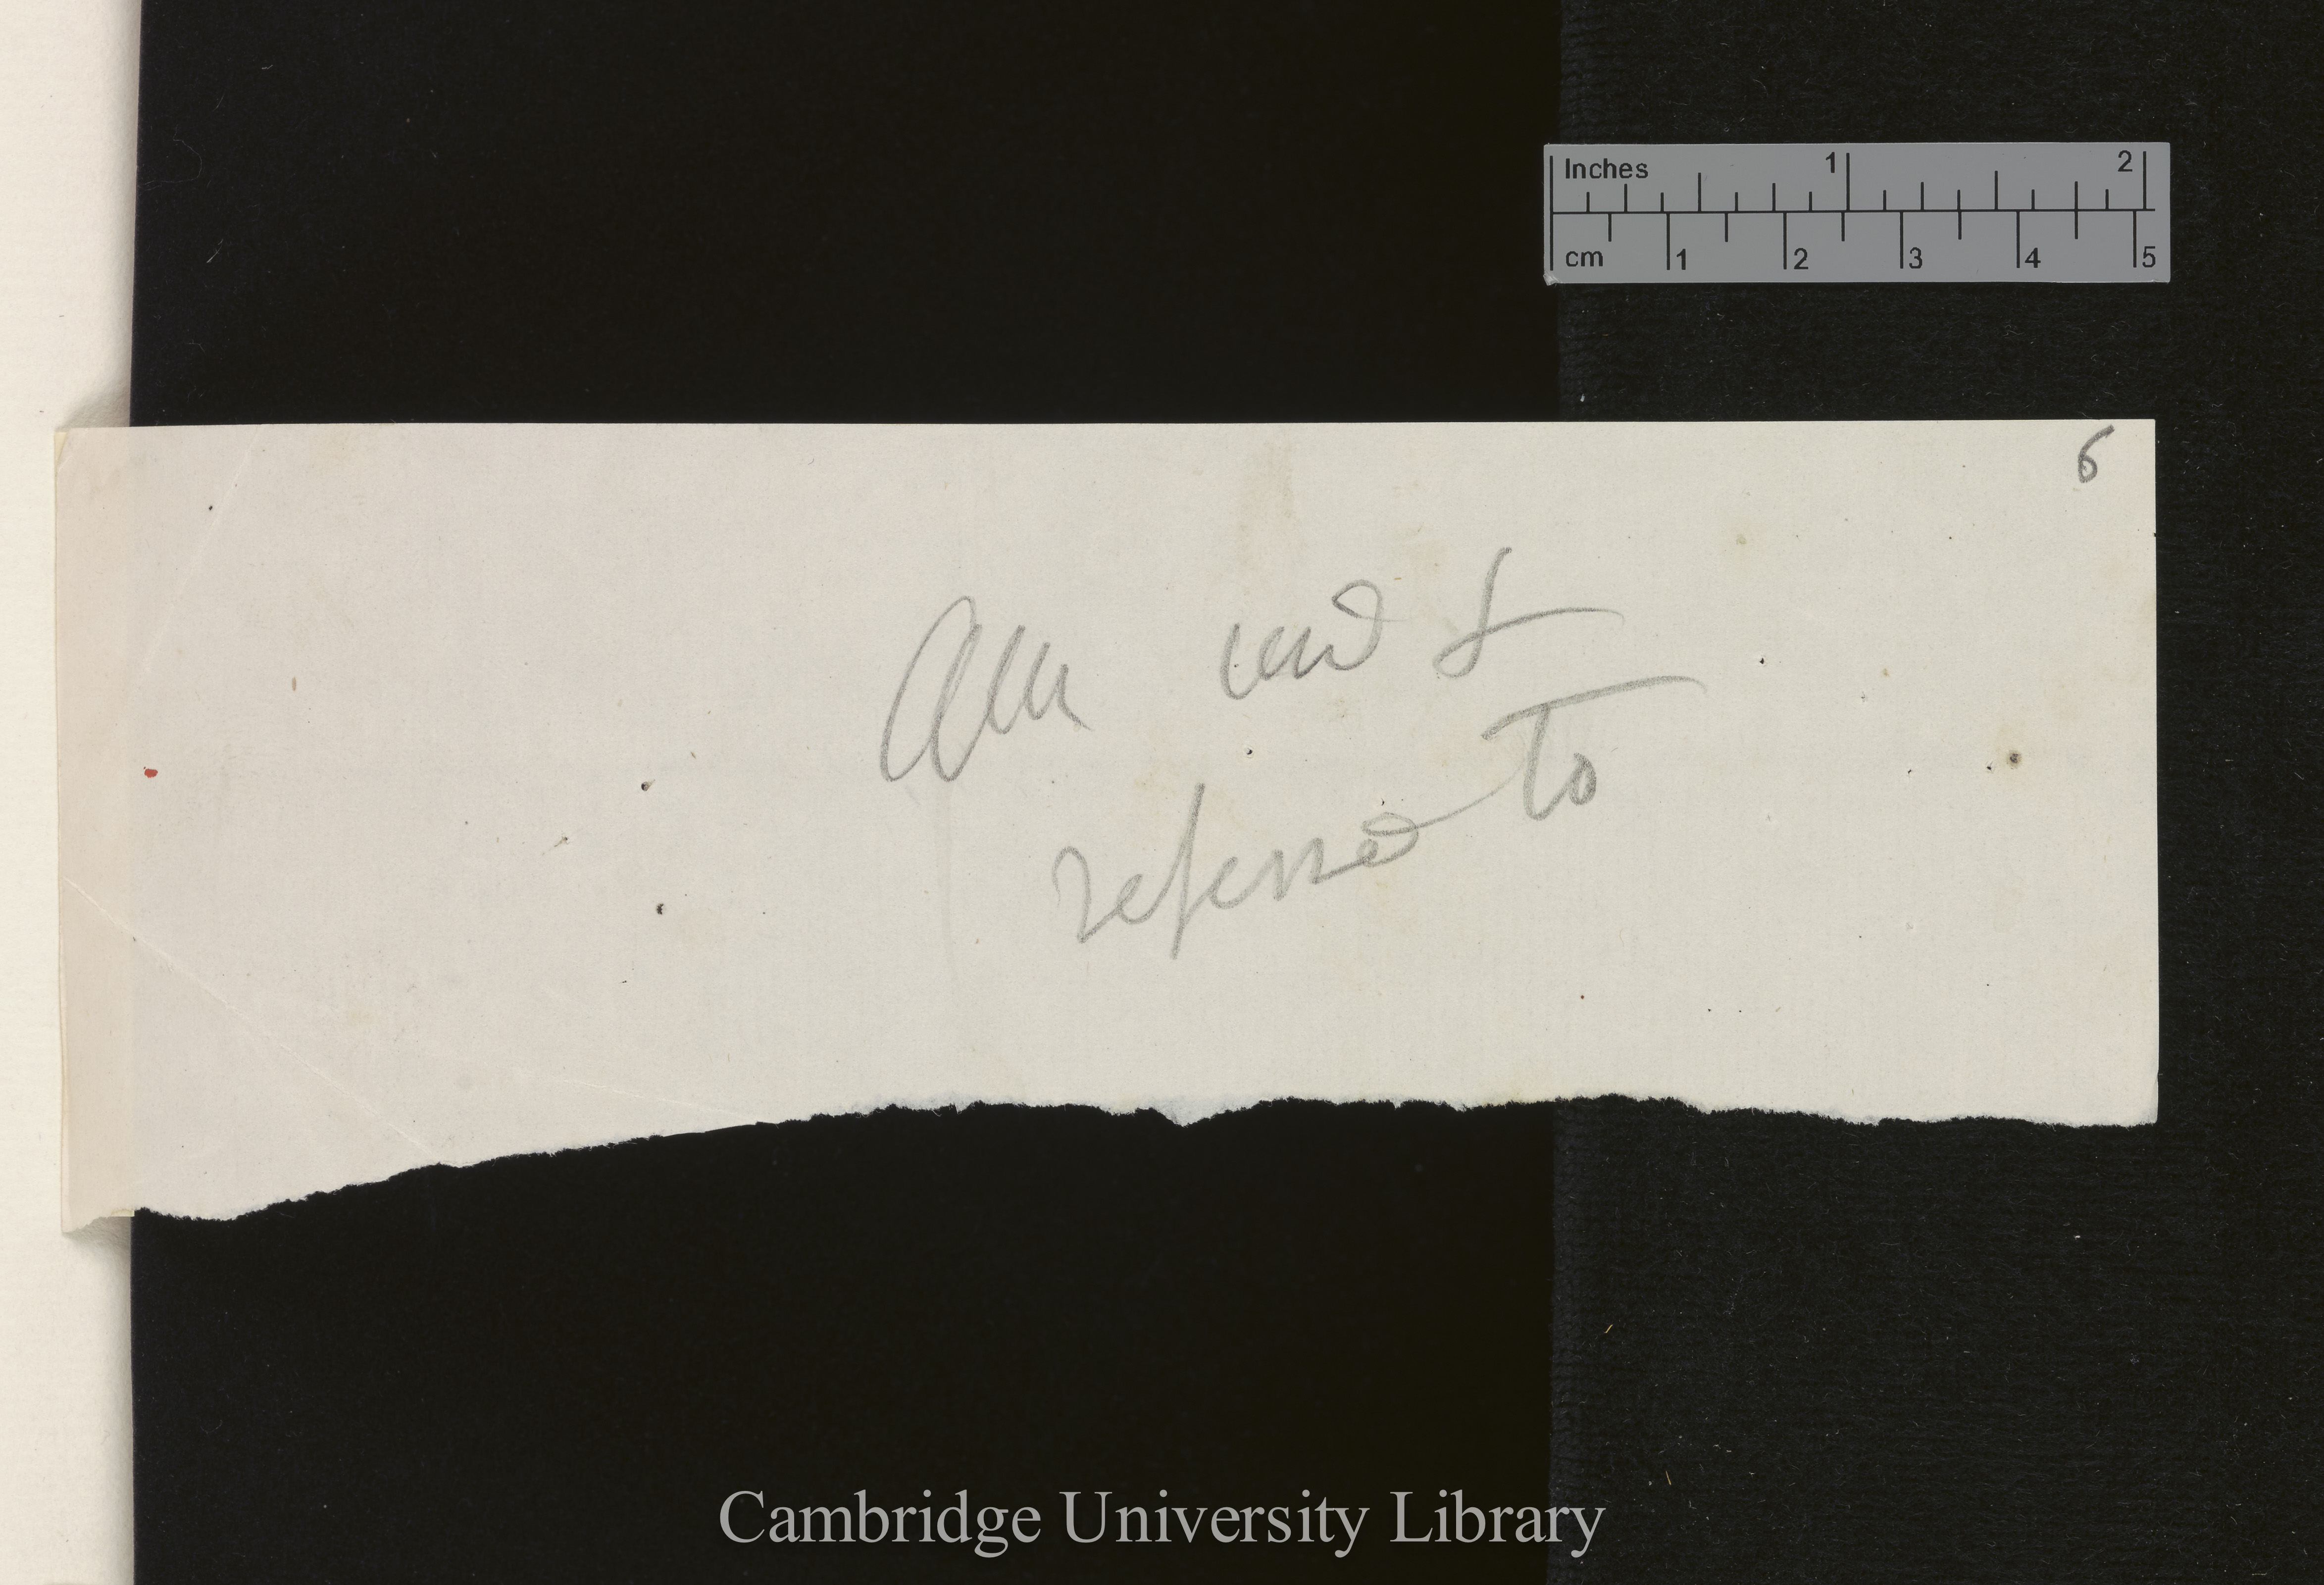 Inches 1 2
cm 1 2 3 4 5
6
All used &
referred to
Cambridge University Library